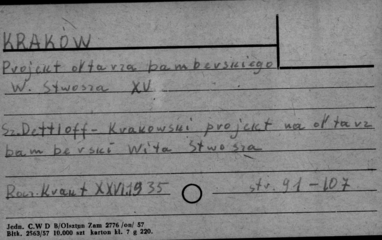 KRAKÓW
Projekt ołtarza bamberskiego
W. Stwosza XV
Sz. Dettloff - Krakowski projekt na ołtarz
bamberski Wita Stwosza
Rocz. Krak XXVI.1935 str. 91-107
Jedn. C.W D B/Olsztyn Zam 2776/on/ 57
Bltk. 2563/57 10.000 szt karton kl. 7 g 220.